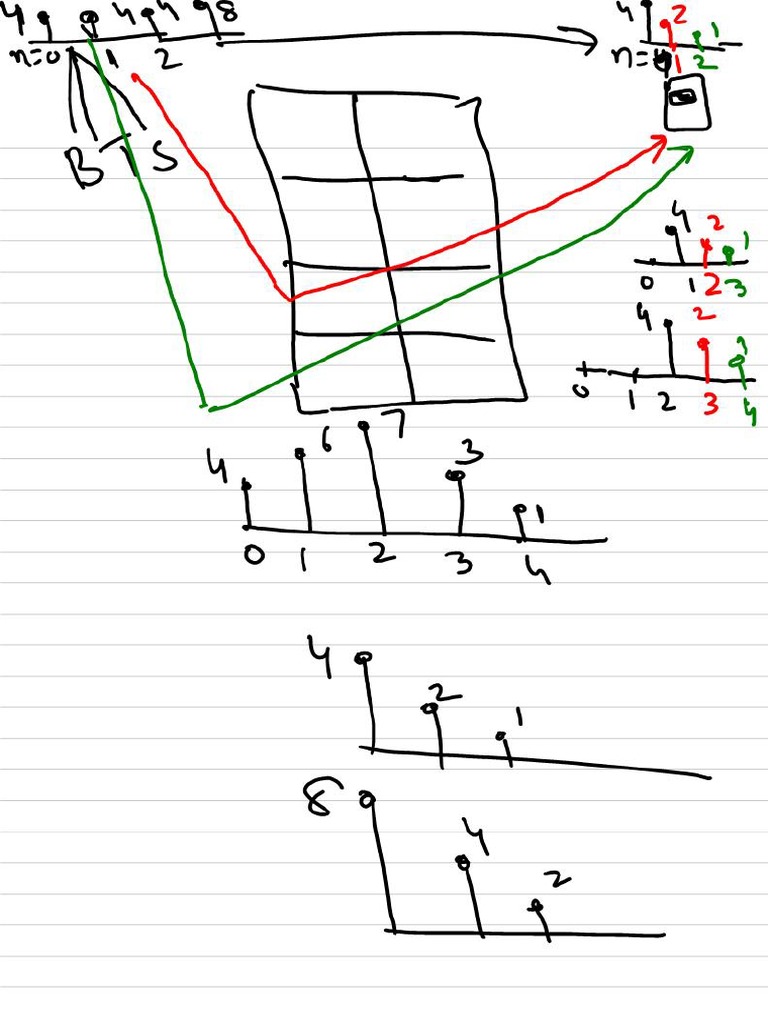 4 4 4 8
n=0 1 2
B T S
4 2 1
n=0 1 2
4 2 1
0 1 2 3
4 2 1
0 1 2 3 4
4 6 7 3 1
0 1 2 3 4
4 2 1
8 4 2